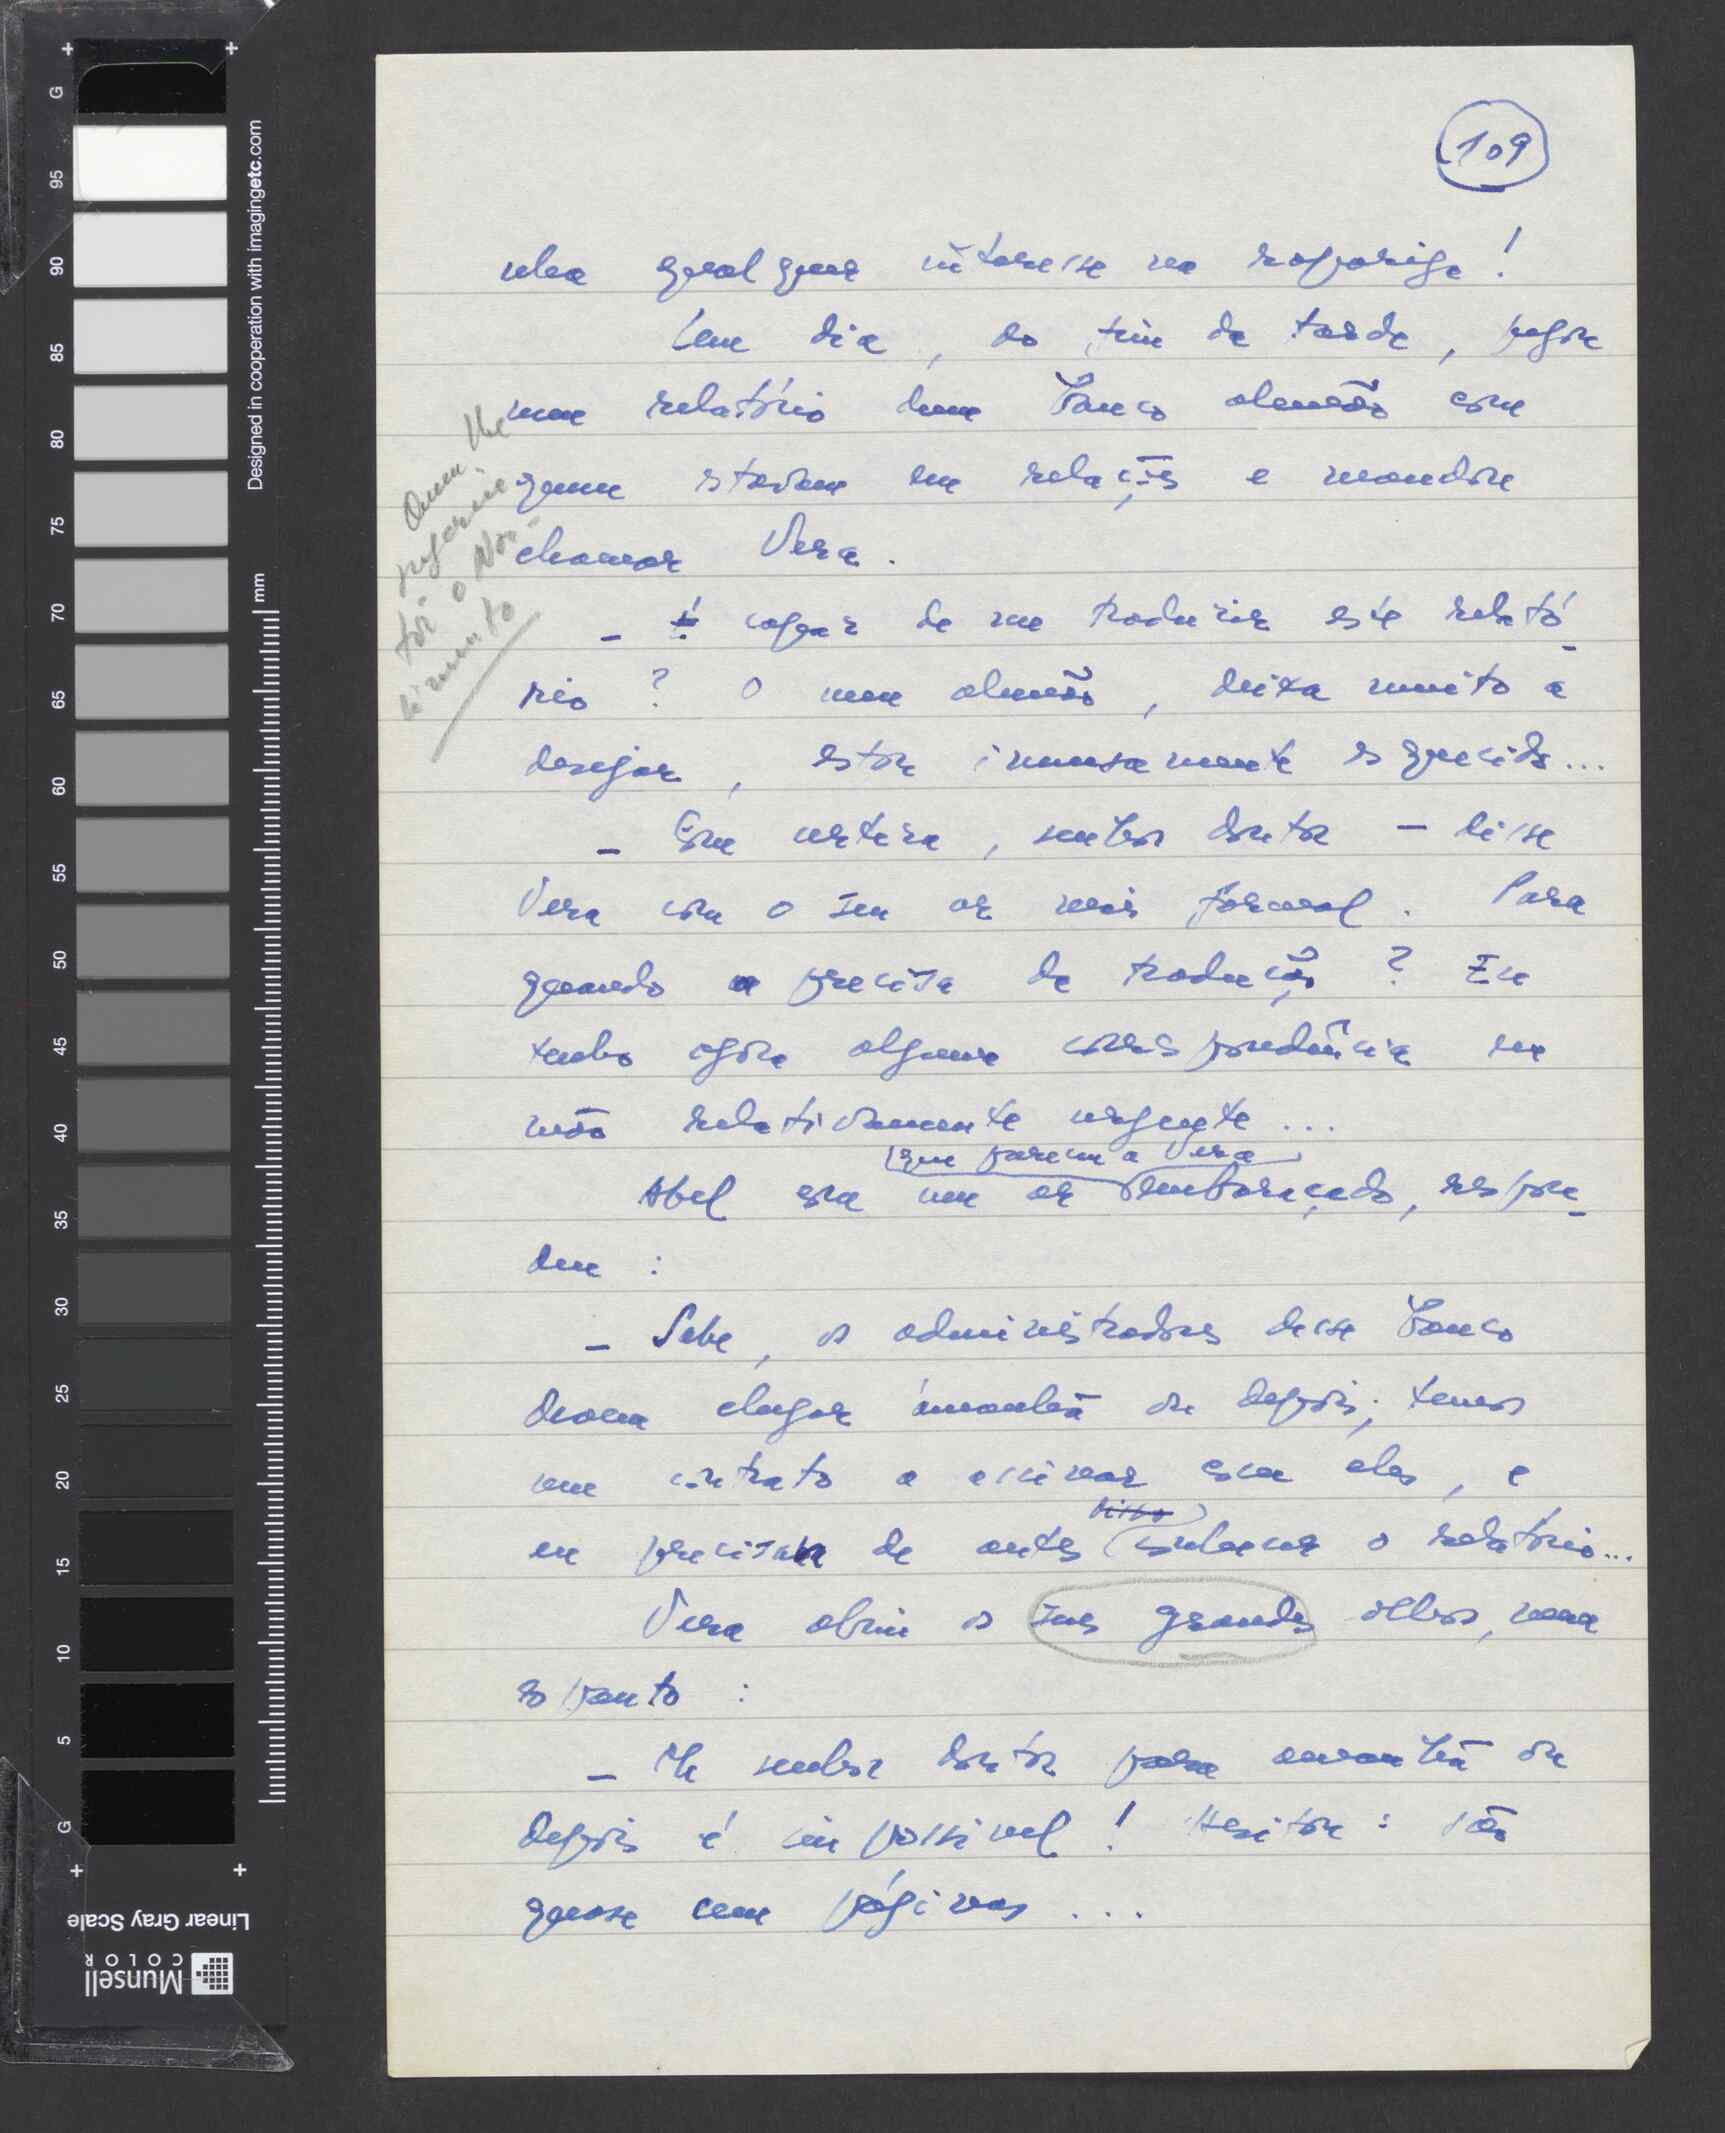 109
nha qualquer interesse na rapariga!
Um dia, ao fim da tarde, pegou
num relatório dum Banco alemão com
quem estavam em relações e mandou
chamar Vera.
— É capaz de me traduzir este relató-
rio? O meu alemão, deixa muito a
desejar, estou imensamente esquecido...
— Com certeza, senhor doutor — disse
Vera com o seu ar mais formal. Para
quando precisa da tradução? Eu
tenho agora alguma correspondência na
mão relativamente urgente...
que pareceu a Vera
Abel com um ar embaraçado, respon-
deu:
— Sabe, os administradores desse Banco
devem chegar àmanhã ou depois; temos
um contrato a assinar com eles, e
disso
eu precisava de antes conhecer o relatório...
Vera abriu os seus grandes olhos, num
espanto:
— Oh senhor doutor para amanhã ou
depois é impossivel! Hesitou: são
quase cem páginas...
Quem lhe
sugeriu
foi o Nor-
berto
Designed in cooperation with imagingetc.com
mm
G
95
90
85
80
75
70
65
60
55
50
45
40
35
30
25
20
15
10
5
G
Linear Gray Scale
Munsell
COLOR